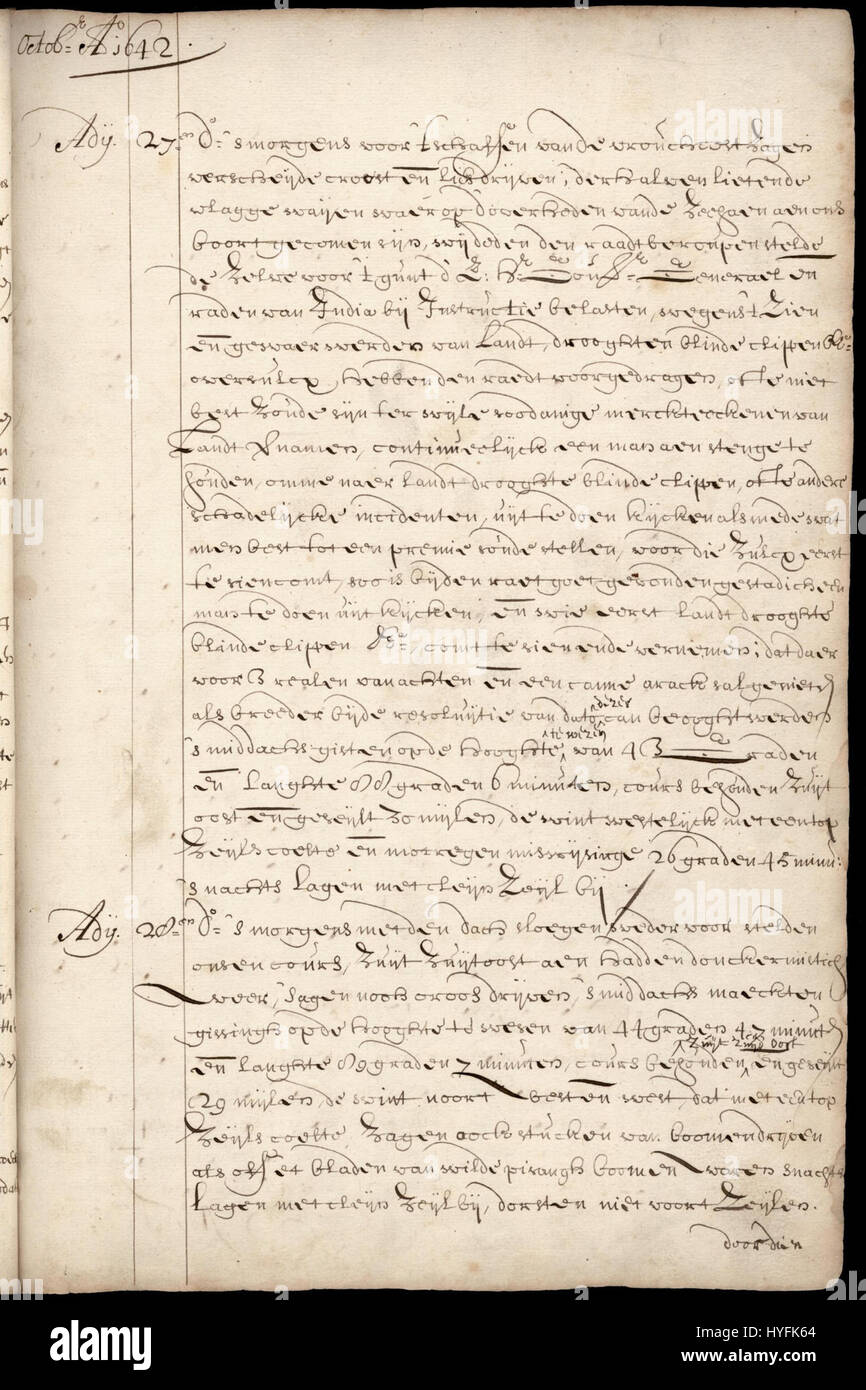 Octobr Ao 1642
Ady. 27en Do 's morgens voor 't schaffen vande vroucheost sagen
verscheyde croost en lis drijven, derhalven lietende
vlagge waijen waer op d'overheden vande Zeehaen aen ons
boort gecomen sijn, wij deden den raadt beroupen stelde
de zelve voor 't gunt d'E: Hr Gouvr Generael en
raden van India bij Instructie belasten, wegens 't zien
en gewaer werden van Landt, drooghten blinde clippen &c
oversulcx hebben den raedt voorgedragen, ofte niet
best zoude sijn ter wijle soodanige merckteeckenen van
Landt vnamen, continueelijck een man aen stenge te
houden, omme naer landt drooghte blinde clippen, ofte andere
schadelijcke incidenten, uijt te doen kijcken als mede wat
men best tot een premie soude stellen, voor die zulcx eerst
te sien comt, soo is bijden raet goet gevonden gestadich een
man te doen uijt kijcken, en wie eerst landt drooghte
blinde clippen &c, comt te sien ende vernemen, dat daer
voor 3 realen van achten en een canne arack sal genieten
als breeder bijde resoluijtie van dato deses can beooght werden
's middachs gisten op de hooghte te wesen van 43 graden
en langhte 88 graden 6 minuten, cours behouden zuijt
oost en geseylt 30 mijlen, de wint westelijck met een top
zeijls coelte en motregen miswijsinge 26 graden 45 minu:
's nachts lagen met cleijn zeyl bij
Ady. 28en Do 's morgens met den dach sloegen weder voor stelden
onsen cours, zuijt zuijtoost aen hadden doncker mistich
weer, sagen noch croos drijven, 's middachs maeckten
gissingh op de hooghte te wesen van 44 graden 47 minuten
en langhte 89 graden 7 minuten, cours behouden, zuijt zuijd oost en geseijlt
29 mijlen, de wint noort west en west, dat met een top
zeijls coelte, zagen oock stucken van boomen drijven
als oft et bladen van wilde pisangh boomen waren snachts
lagen met cleijn zeyl bij, dorsten niet voort zeylen.
door dien
alamy
HYFK64
www.alamy.com